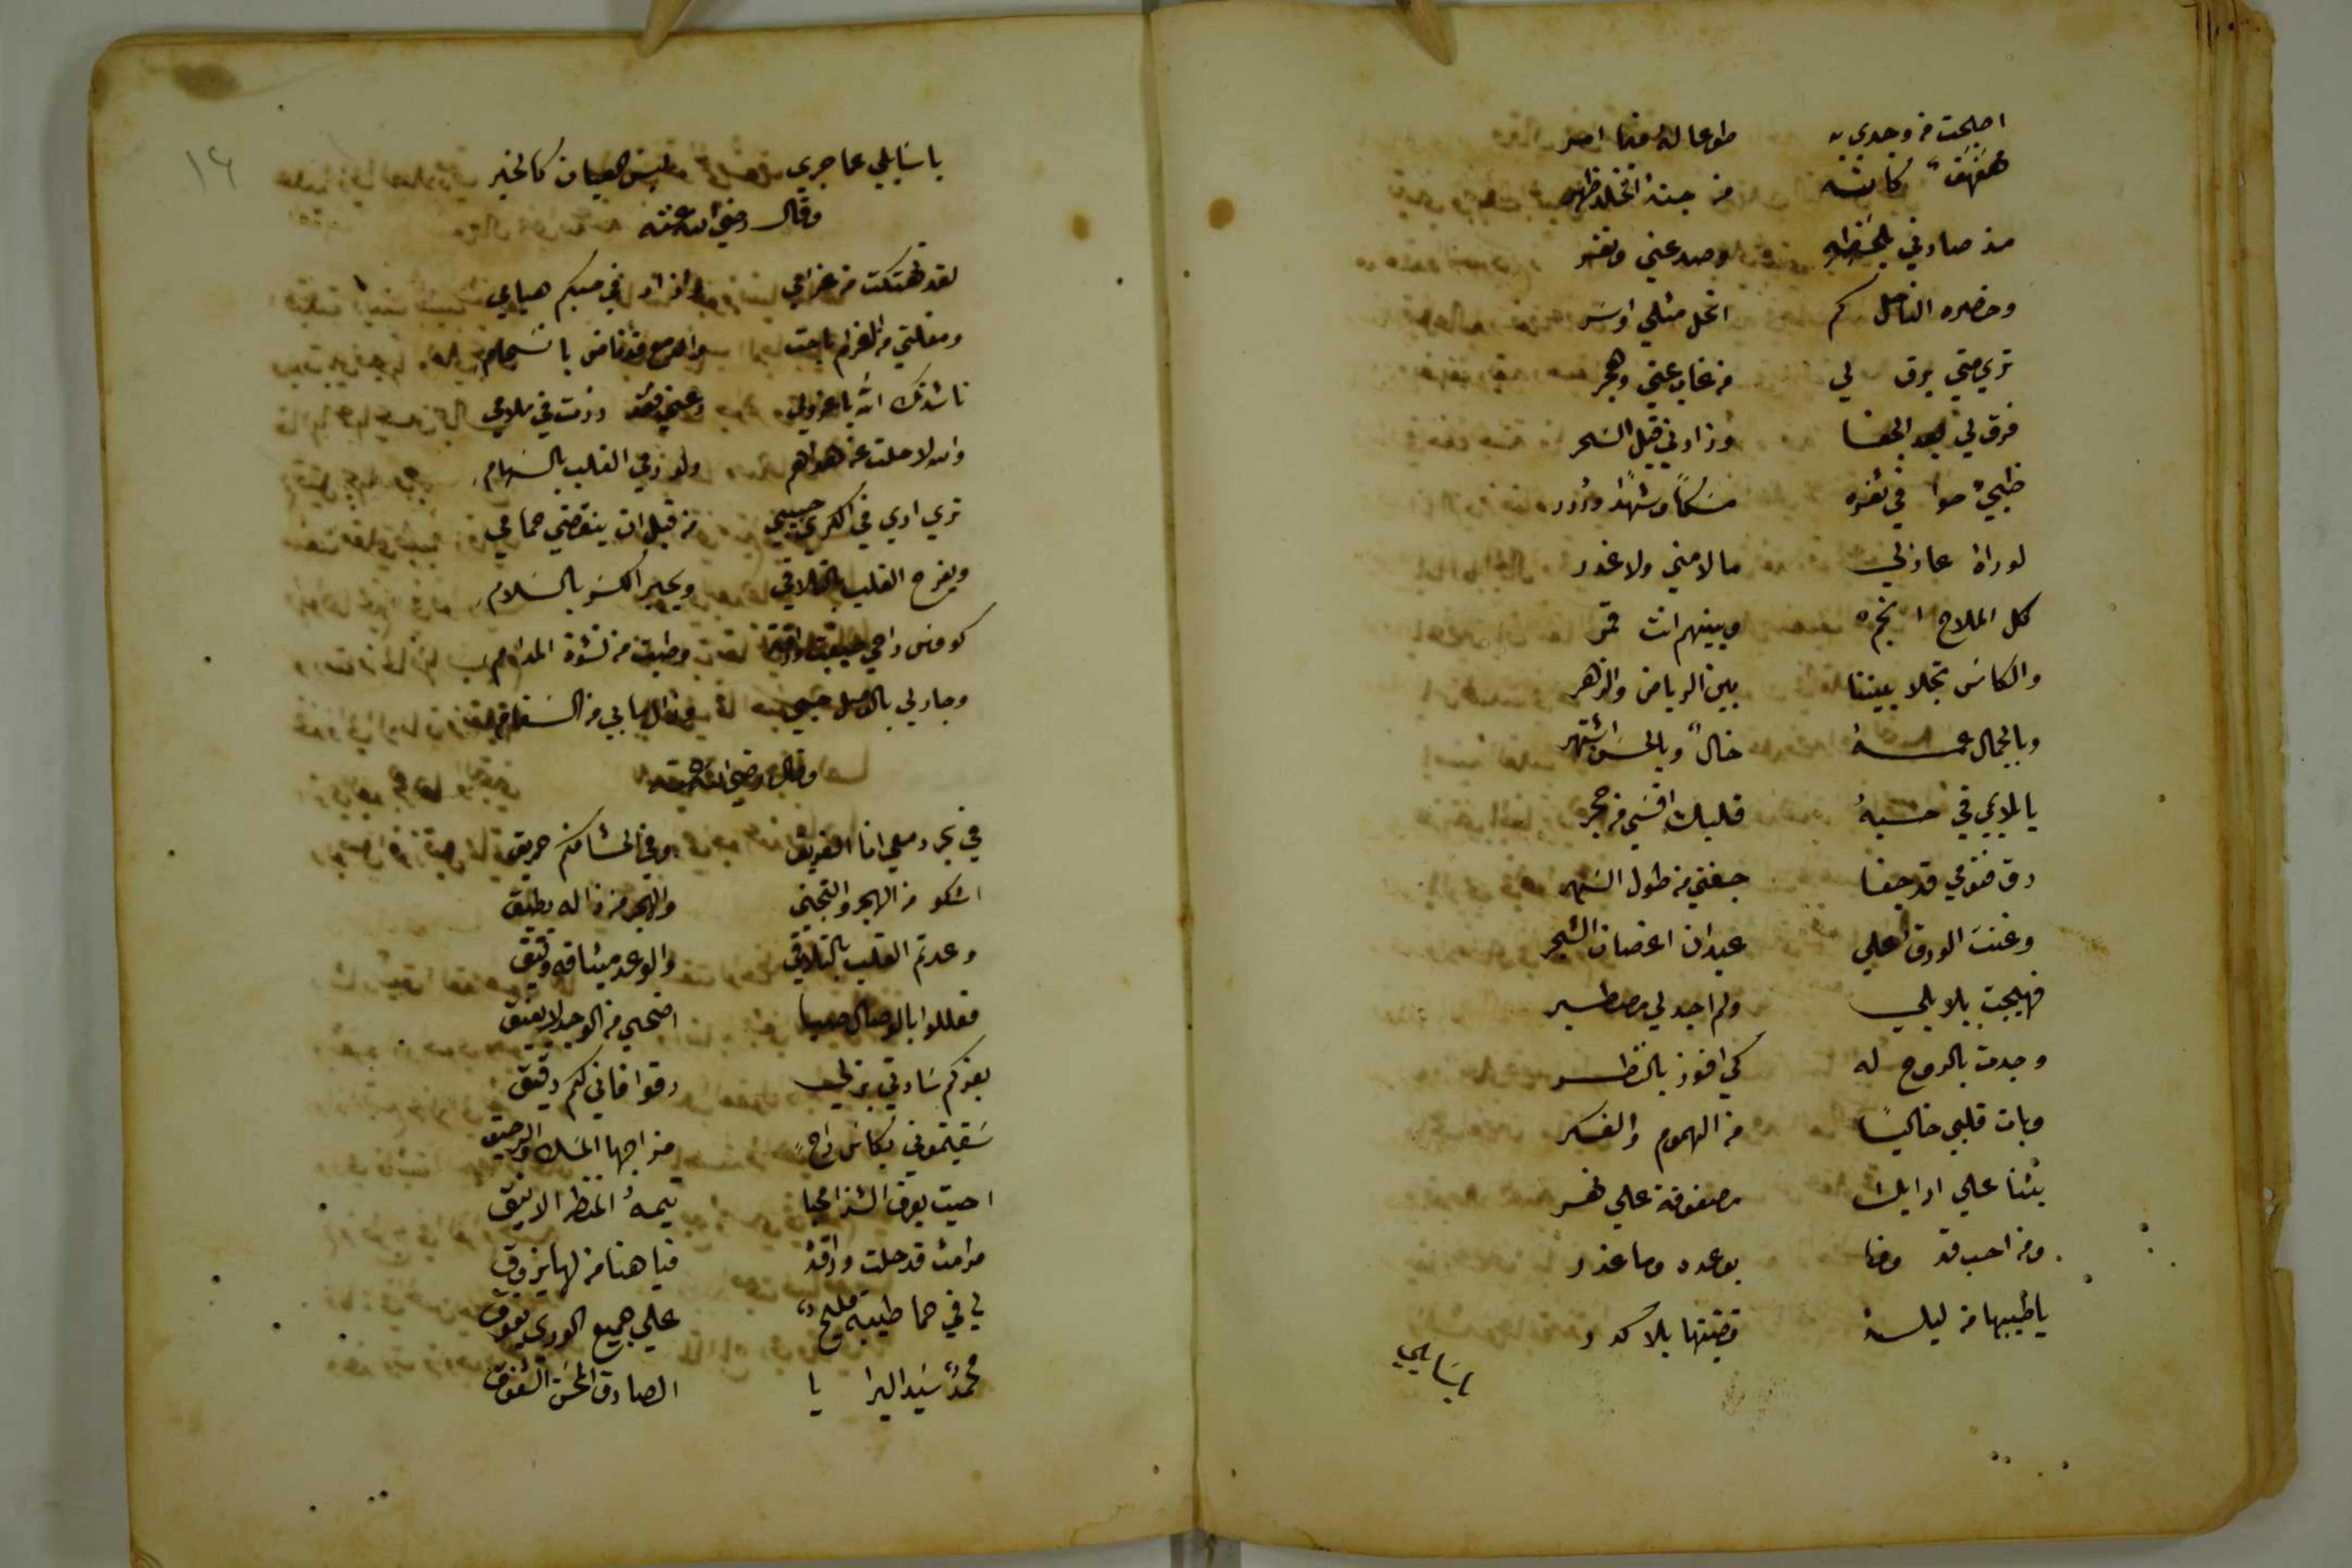 اصبحت من وجدي به طوعا له فيما امر
مهفهف كانه من جنة الخلد ظهر
مذ صادني بلحظه وصد عني ونفر
وخصره الناحل كم انحل مثلي واسر
تري متي يرق لي من غاب عني وهجر
فرق لي بعد الجفا وزارني قبل السحر
ظبي حوا في ثغره مسكا وشهدا ودرر
لو راه عاذلي ما لامني ولا غدر
كل الملاح انجم وبينهم انت قمر
والكاس تجلا بيننا بين الرياض والزهر
وبالجمال عمه خال وبالحسن اشتهر
يا لايمي في حسنه قلبك اقسي من حجر
رق فنومي قد جفا جفني من طول السهر
وغنت الورق علي عيدان اغصان الشجر
فهيجت بلابلي ولم اجد لي مصطبر
وجدت بالروح له كي افوز بالنظر
وبات قلبي خاليا من الهموم والفكر
بتنا علي ارايك مصفوفة علي نهر
ومن احب قد وفا بوعده وما غدر
يا طيبها من ليلة قضيتها بلا كدر
يا سايلي
١٦
يا سايلي عما جري وليس العيان كالخبر
وقال رضي الله عنه
لقد تهتكت من غرامي وزاد في حبكم هيامي
ومقلتي من الغرام باحت والدمع قد فاض بانسجام
ناشدتك الله يا عذولي دعني فقد زدت في ملامي
والله لا حلت عن هواهم ولو رمي القلب بالسهام
تري اري في الكري حبيبي من قبل ان ينقضي حمامي
ويفرح القلب بالتلاقي ويجبر الكسر بالسلام
كووس راحي صفت وراقت وطبت من نشوة المدام
وجاد لي بالوصل حبي وزال ما بي من السقام
وقال رضي الله عنه
في بحر دمعي انا الغريق وفي الحشا منكم حريق
اشكو من الهجر والتجني والهجر من ذا له يطيق
وعدتم القلب بالتلاقي والوعد ميثاقه وثيق
فعللوا بالوصال صبا اضحي من الوجد لا يفيق
بعزكم سادتي بذلي رقوا فاني لكم رقيق
سقيتموني بكاس راح مزاجها المسك والرحيق
احيت بعرف الشذا محيا تيمه المنظر الانيق
مدامة قد حلت وراقت فيا هنا من لها يذوق
لي في حما طيبة مليح علي جميع الوري يفوق
محمد سيد البرايا الصادق المحسن الشفوق